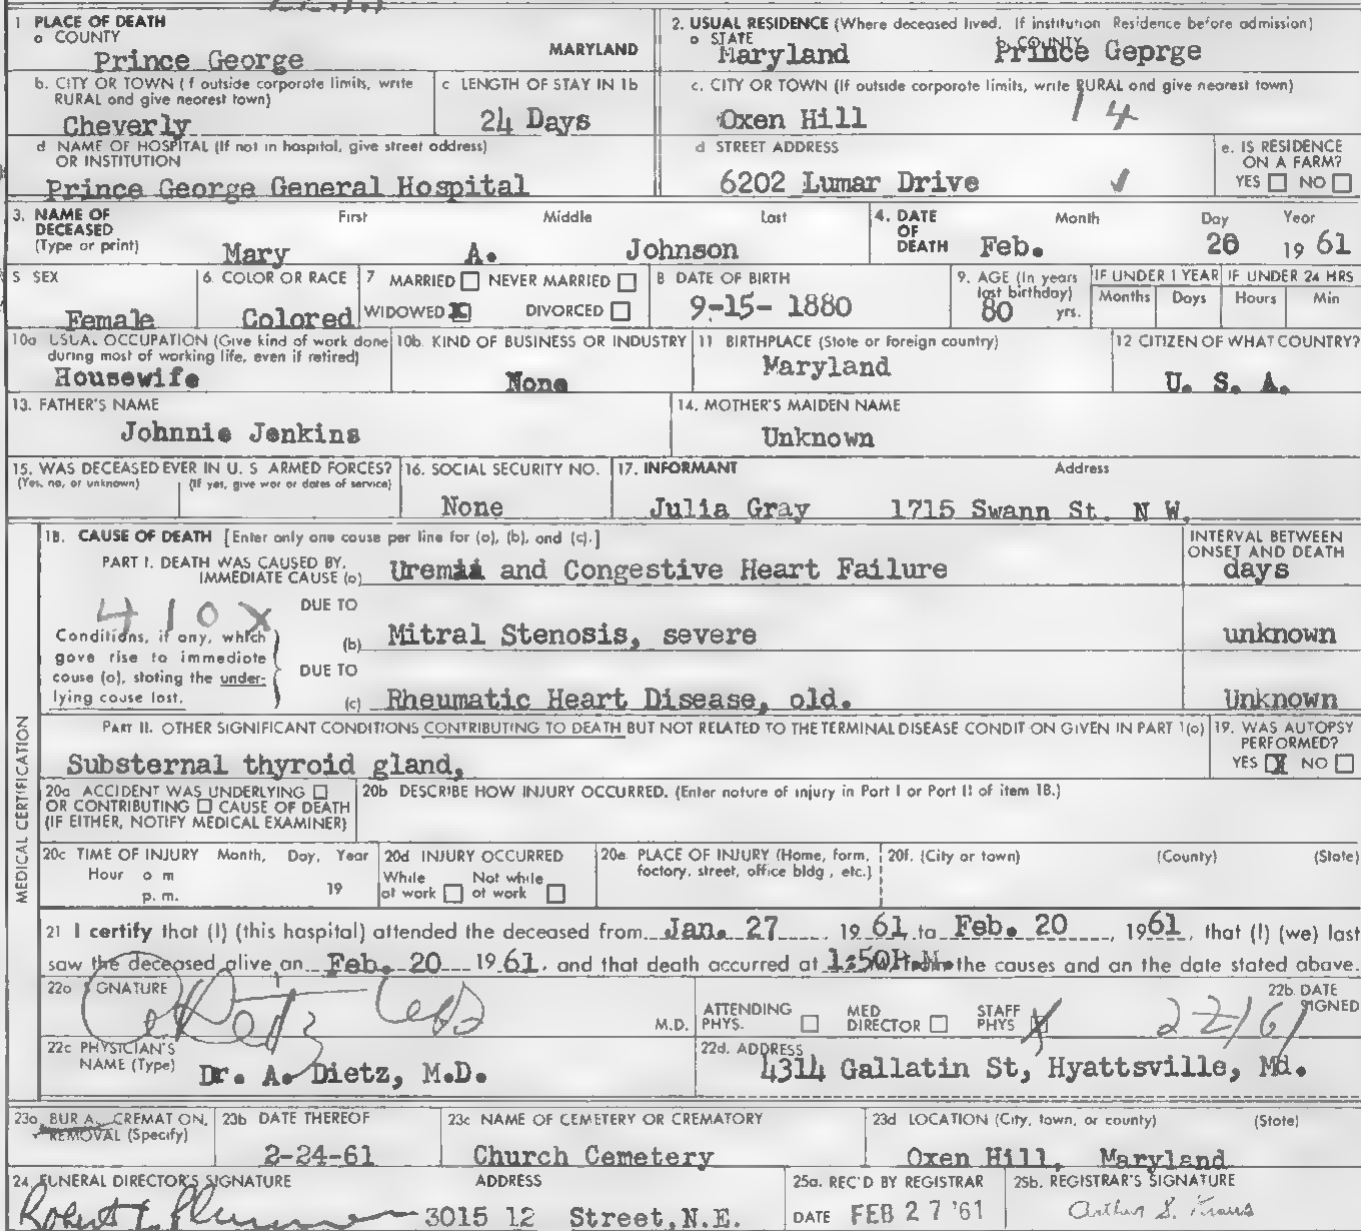 1 PLACE OF DEATH
a COUNTY
Prince George MARYLAND
2. USUAL RESIDENCE (Where deceased lived. If institution Residence before admission)
a STATE b. COUNTY
Maryland Prince Geprge
b. CITY OR TOWN (f outside corporate limits, write RURAL and give nearest town)
Cheverly
c LENGTH OF STAY IN 1b
24 Days
c. CITY OR TOWN (If outside corporate limits, write RURAL and give nearest town)
Oxen Hill 14
d NAME OF HOSPITAL (If not in hospital, give street address) OR INSTITUTION
Prince George General Hospital
d STREET ADDRESS
6202 Lumar Drive
e. IS RESIDENCE ON A FARM?
YES NO
3. NAME OF DECEASED (Type or print)
First Middle Last
Mary A. Johnson
4. DATE OF DEATH
Month Day Year
Feb. 20 19 61
5 SEX
Female
6. COLOR OR RACE
Colored
7 MARRIED NEVER MARRIED
WIDOWED X DIVORCED
8 DATE OF BIRTH
9-15- 1880
9. AGE (In years last birthday)
80 yrs.
IF UNDER 1 YEAR IF UNDER 24 HRS
Months Days Hours Min
10a USUAL OCCUPATION (Give kind of work done during most of working life, even if retired)
Housewife
10b. KIND OF BUSINESS OR INDUSTRY
None
11 BIRTHPLACE (State or foreign country)
Maryland
12 CITIZEN OF WHAT COUNTRY?
U. S. A.
13. FATHER'S NAME
Johnnie Jenkins
14. MOTHER'S MAIDEN NAME
Unknown
15. WAS DECEASED EVER IN U. S ARMED FORCES?
(Yes, no, or unknown) (If yes, give war or dates of service)
16. SOCIAL SECURITY NO.
None
17. INFORMANT Address
Julia Gray 1715 Swann St. N W.
MEDICAL CERTIFICATION
18. CAUSE OF DEATH [Enter only one cause per line for (a), (b), and (c).]
INTERVAL BETWEEN ONSET AND DEATH
PART I. DEATH WAS CAUSED BY.
IMMEDIATE CAUSE (a) Uremii and Congestive Heart Failure days
410X
DUE TO
(b) Mitral Stenosis, severe unknown
Conditions, if any, which gave rise to immediate cause (a), stating the underlying cause last.
DUE TO
(c) Rheumatic Heart Disease, old. Unknown
PART II. OTHER SIGNIFICANT CONDITIONS CONTRIBUTING TO DEATH BUT NOT RELATED TO THE TERMINAL DISEASE CONDIT ON GIVEN IN PART 1(a)
Substernal thyroid gland,
19. WAS AUTOPSY PERFORMED?
YES X NO
20a ACCIDENT WAS UNDERLYING
OR CONTRIBUTING CAUSE OF DEATH
(IF EITHER, NOTIFY MEDICAL EXAMINER)
20b DESCRIBE HOW INJURY OCCURRED. (Enter nature of injury in Part I or Part II of item 18.)
20c TIME OF INJURY Month, Day, Year
Hour a m
p. m. 19
20d INJURY OCCURRED
While at work Not while at work
20e. PLACE OF INJURY (Home, farm, factory, street, office bldg , etc.)
20f. (City or town) (County) (State)
21 I certify that (I) (this hospital) attended the deceased from Jan. 27 19 61, to Feb. 20 1961, that (I) (we) last
saw the deceased alive on Feb. 20 19 61, and that death occurred at 1:50 the causes and on the date stated above.
22a GNATURE
M.D.
ATTENDING PHYS. MED DIRECTOR STAFF PHYS X
22b. DATE SIGNED
22c PHYSICIAN'S NAME (Type)
Dr. A. Dietz, M.D.
22d. ADDRESS
4314 Gallatin St, Hyattsville, Md.
23a BUR A, CREMAT ON, REMOVAL (Specify)
23b DATE THEREOF
2-24-61
23c NAME OF CEMETERY OR CREMATORY
Church Cemetery
23d LOCATION (City, town, or county) (State)
Oxen Hill, Maryland
24 FUNERAL DIRECTOR'S SIGNATURE ADDRESS
Robert 3015 12 Street, N.E.
25a. REC'D BY REGISTRAR
DATE FEB 27 '61
25b. REGISTRAR'S SIGNATURE
Arthur S. Kraus